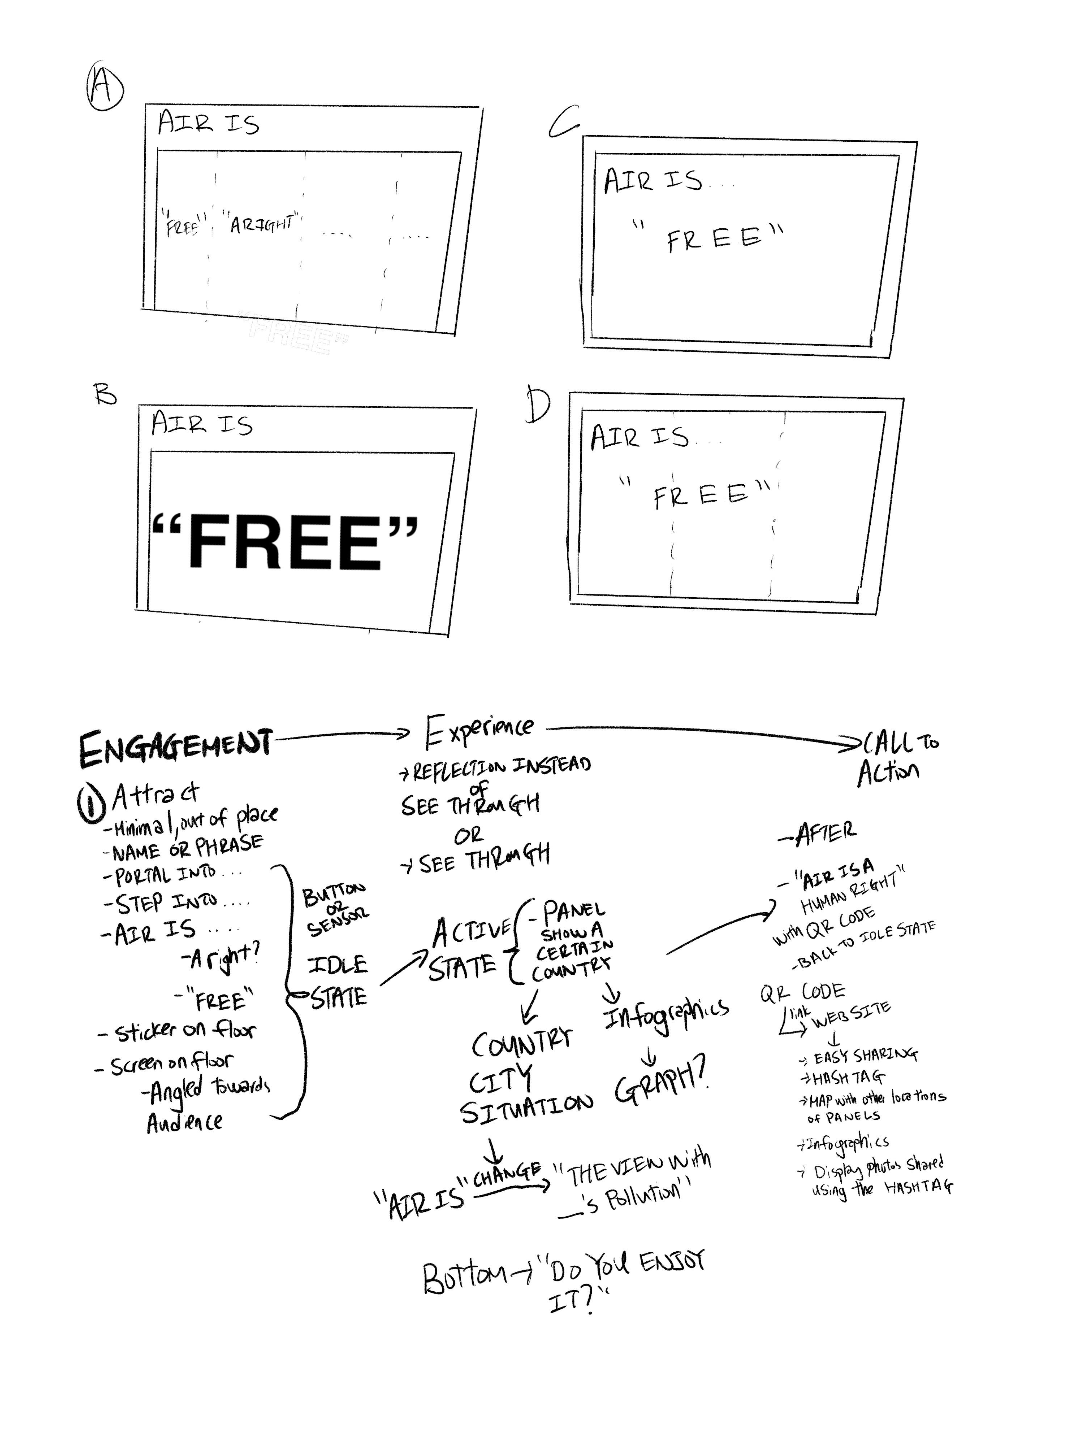 A
AIR IS
"FREE" "A RIGHT" .... ....
FREE"
B
AIR IS
“FREE”
C
AIR IS...
"FREE"
D
AIR IS...
"FREE"
ENGAGEMENT
① Attract
-Minimal, out of place
-NAME OR PHRASE
-PORTAL INTO...
-STEP INTO....
-AIR IS ....
-A right?
-"FREE"
-Sticker on floor
-Screen on floor
-Angled towards
Audience
BUTTON
OR
SENSOR
IDLE
STATE
Experience
→REFLECTION INSTEAD
of
SEE THROUGH
OR
→SEE THROUGH
ACTIVE
STATE
-PANEL
SHOW A
CERTAIN
COUNTRY
COUNTRY
CITY
SITUATION
Infographics
GRAPH?
"AIR IS" CHANGE "THE VIEW with
__'s Pollution"
Bottom→"Do You ENJOY
IT?"
CALL TO
Action
-AFTER
-"AIR IS A
HUMAN RIGHT"
with QR CODE
-BACK TO IDLE STATE
QR CODE
link WEBSITE
→EASY SHARING
→HASHTAG
→MAP with other locations
of PANELS
→Infographics
→Display photos shared
using the HASHTAG